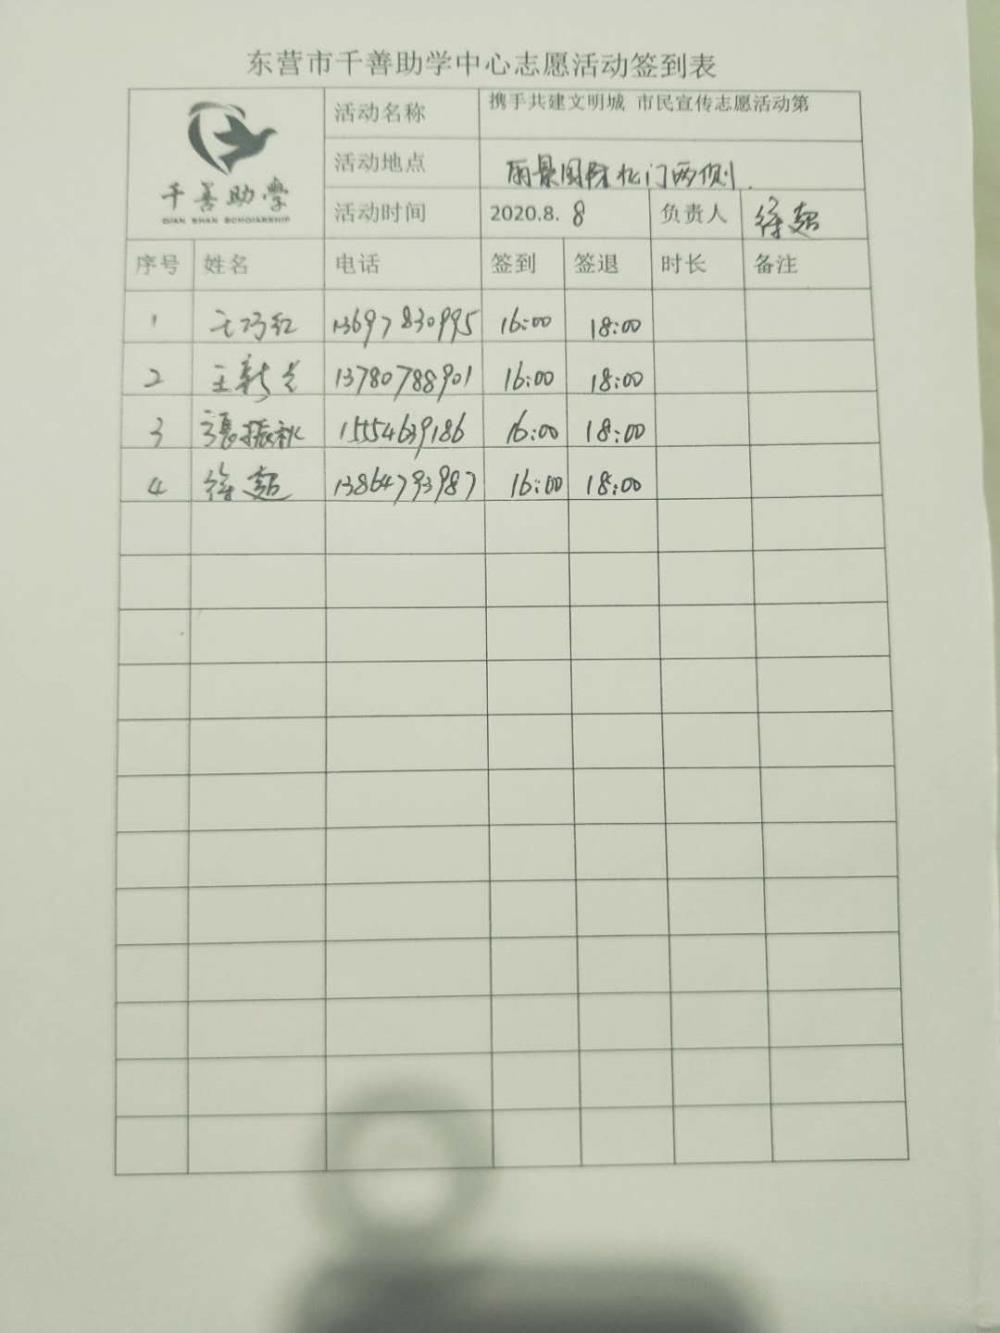 东营市千善助学中心志愿活动签到表
千善助学
QIAN SHAN SCHOLARSHIP
活动名称 携手共建文明城 市民宣传志愿活动第
活动地点 丽景国际北门两侧.
活动时间 2020.8. 8 负责人 徐超
序号 姓名 电话 签到 签退 时长 备注
1 王巧红 13697830995 16:00 18:00
2 王新 13780788901 16:00 18:00
3 張振秋 15554639186 16:00 18:00
4 徐超 13864793987 16:00 18:00